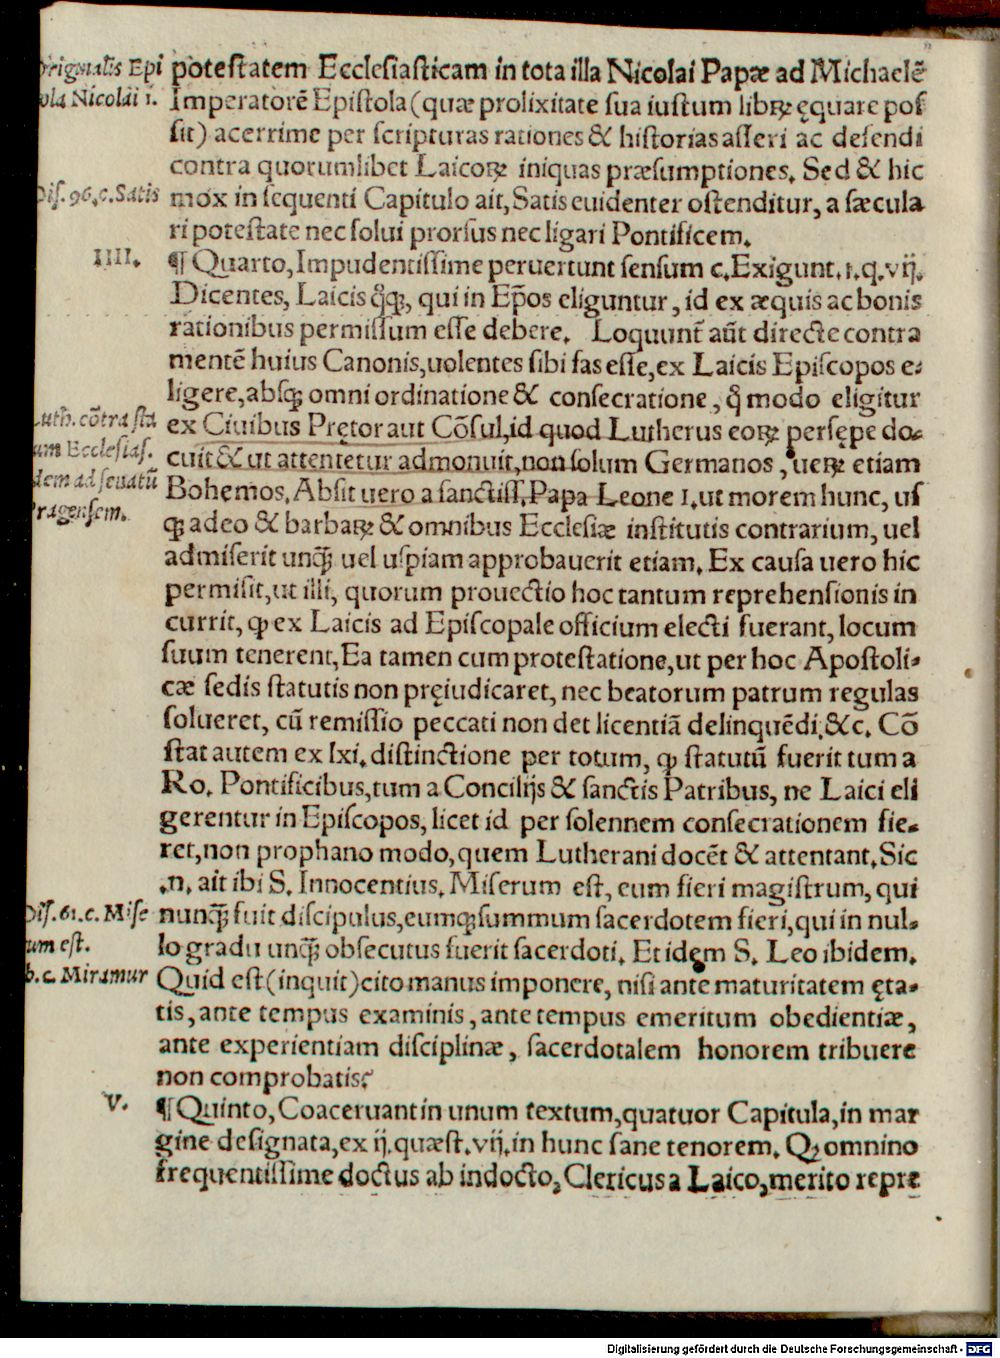 Originalis Epi
ola Nicolai 1.
potestatem Ecclesiasticam in tota illa Nicolai Papæ ad Michaelē
Imperatorē Epistola (quæ prolixitate sua iustum librꝝ ęquare pos
sit) acerrime per scripturas rationes & historias asseri ac defendi
contra quorumlibet Laicoꝝ iniquas præsumptiones. Sed & hic
Dis. 96. c. Satis
mox in sequenti Capitulo ait, Satis euidenter ostenditur, a sæcula
ri potestate nec solui prorsus nec ligari Pontificem.
IIII.
¶ Quarto, Impudentissime peruertunt sensum c. Exigunt. 1. q. vij.
Dicentes, Laicis q̃q̃, qui in Ep̃os eliguntur, id ex æquis ac bonis
rationibus permissum esse debere. Loquunt̃ aũt directe contra
mentē huius Canonis, uolentes sibi fas esse, ex Laicis Episcopos e-
ligere, absqꝫ omni ordinatione & consecratione, q̊ modo eligitur
Luth. cōtra sta
tum Ecclesias.
Idem ad senatū
Pragensem.
ex Ciuibus Prętor aut Cōsul, id quod Lutherus eoꝝ persępe do-
cuit & ut attentetur admonuit, non solum Germanos, ueꝝ etiam
Bohemos. Absit uero a sanctiss. Papa Leone 1. ut morem hunc, us
qꝫ adeo & barbaꝝ & omnibus Ecclesiæ institutis contrarium, uel
admiserit unq̃ uel uspiam approbauerit etiam. Ex causa uero hic
permisit, ut illi, quorum prouectio hoc tantum reprehensionis in
currit, ꝙ ex Laicis ad Episcopale officium electi fuerant, locum
suum tenerent, Ea tamen cum protestatione, ut per hoc Apostoli-
cæ sedis statutis non pręiudicaret, nec beatorum patrum regulas
solueret, cū remissio peccati non det licentiā delinquēdi, &c. Cō
stat autem ex lxi. distinctione per totum, ꝙ statutū fuerit tum a
Ro. Pontificibus, tum a Concilijs & sanctis Patribus, ne Laici eli
gerentur in Episcopos, licet id per solennem consecrationem fie-
ret, non prophano modo, quem Lutherani docēt & attentant. Sic
.n. ait ibi S. Innocentius. Miserum est, eum fieri magistrum, qui
Dis. 61. c. Mise
rum est.
Ib. c. Miramur
nunq̃ fuit discipulus, eumqꝫ summum sacerdotem fieri, qui in nul-
lo gradu unq̃ obsecutus fuerit sacerdoti. Et idem S. Leo ibidem.
Quid est (inquit) cito manus imponere, nisi ante maturitatem ęta-
tis, ante tempus examinis, ante tempus emeritum obedientiæ,
ante experientiam disciplinæ, sacerdotalem honorem tribuere
non comprobatis?
V.
¶ Quinto, Coaceruant in unum textum, quatuor Capitula, in mar
gine designata, ex ij. quæst. vij. in hunc sane tenorem. Qꝫ omnino
frequentissime doctus ab indocto, Clericus a Laico, merito repre
Digitalisierung gefördert durch die Deutsche Forschungsgemeinschaft - DFG